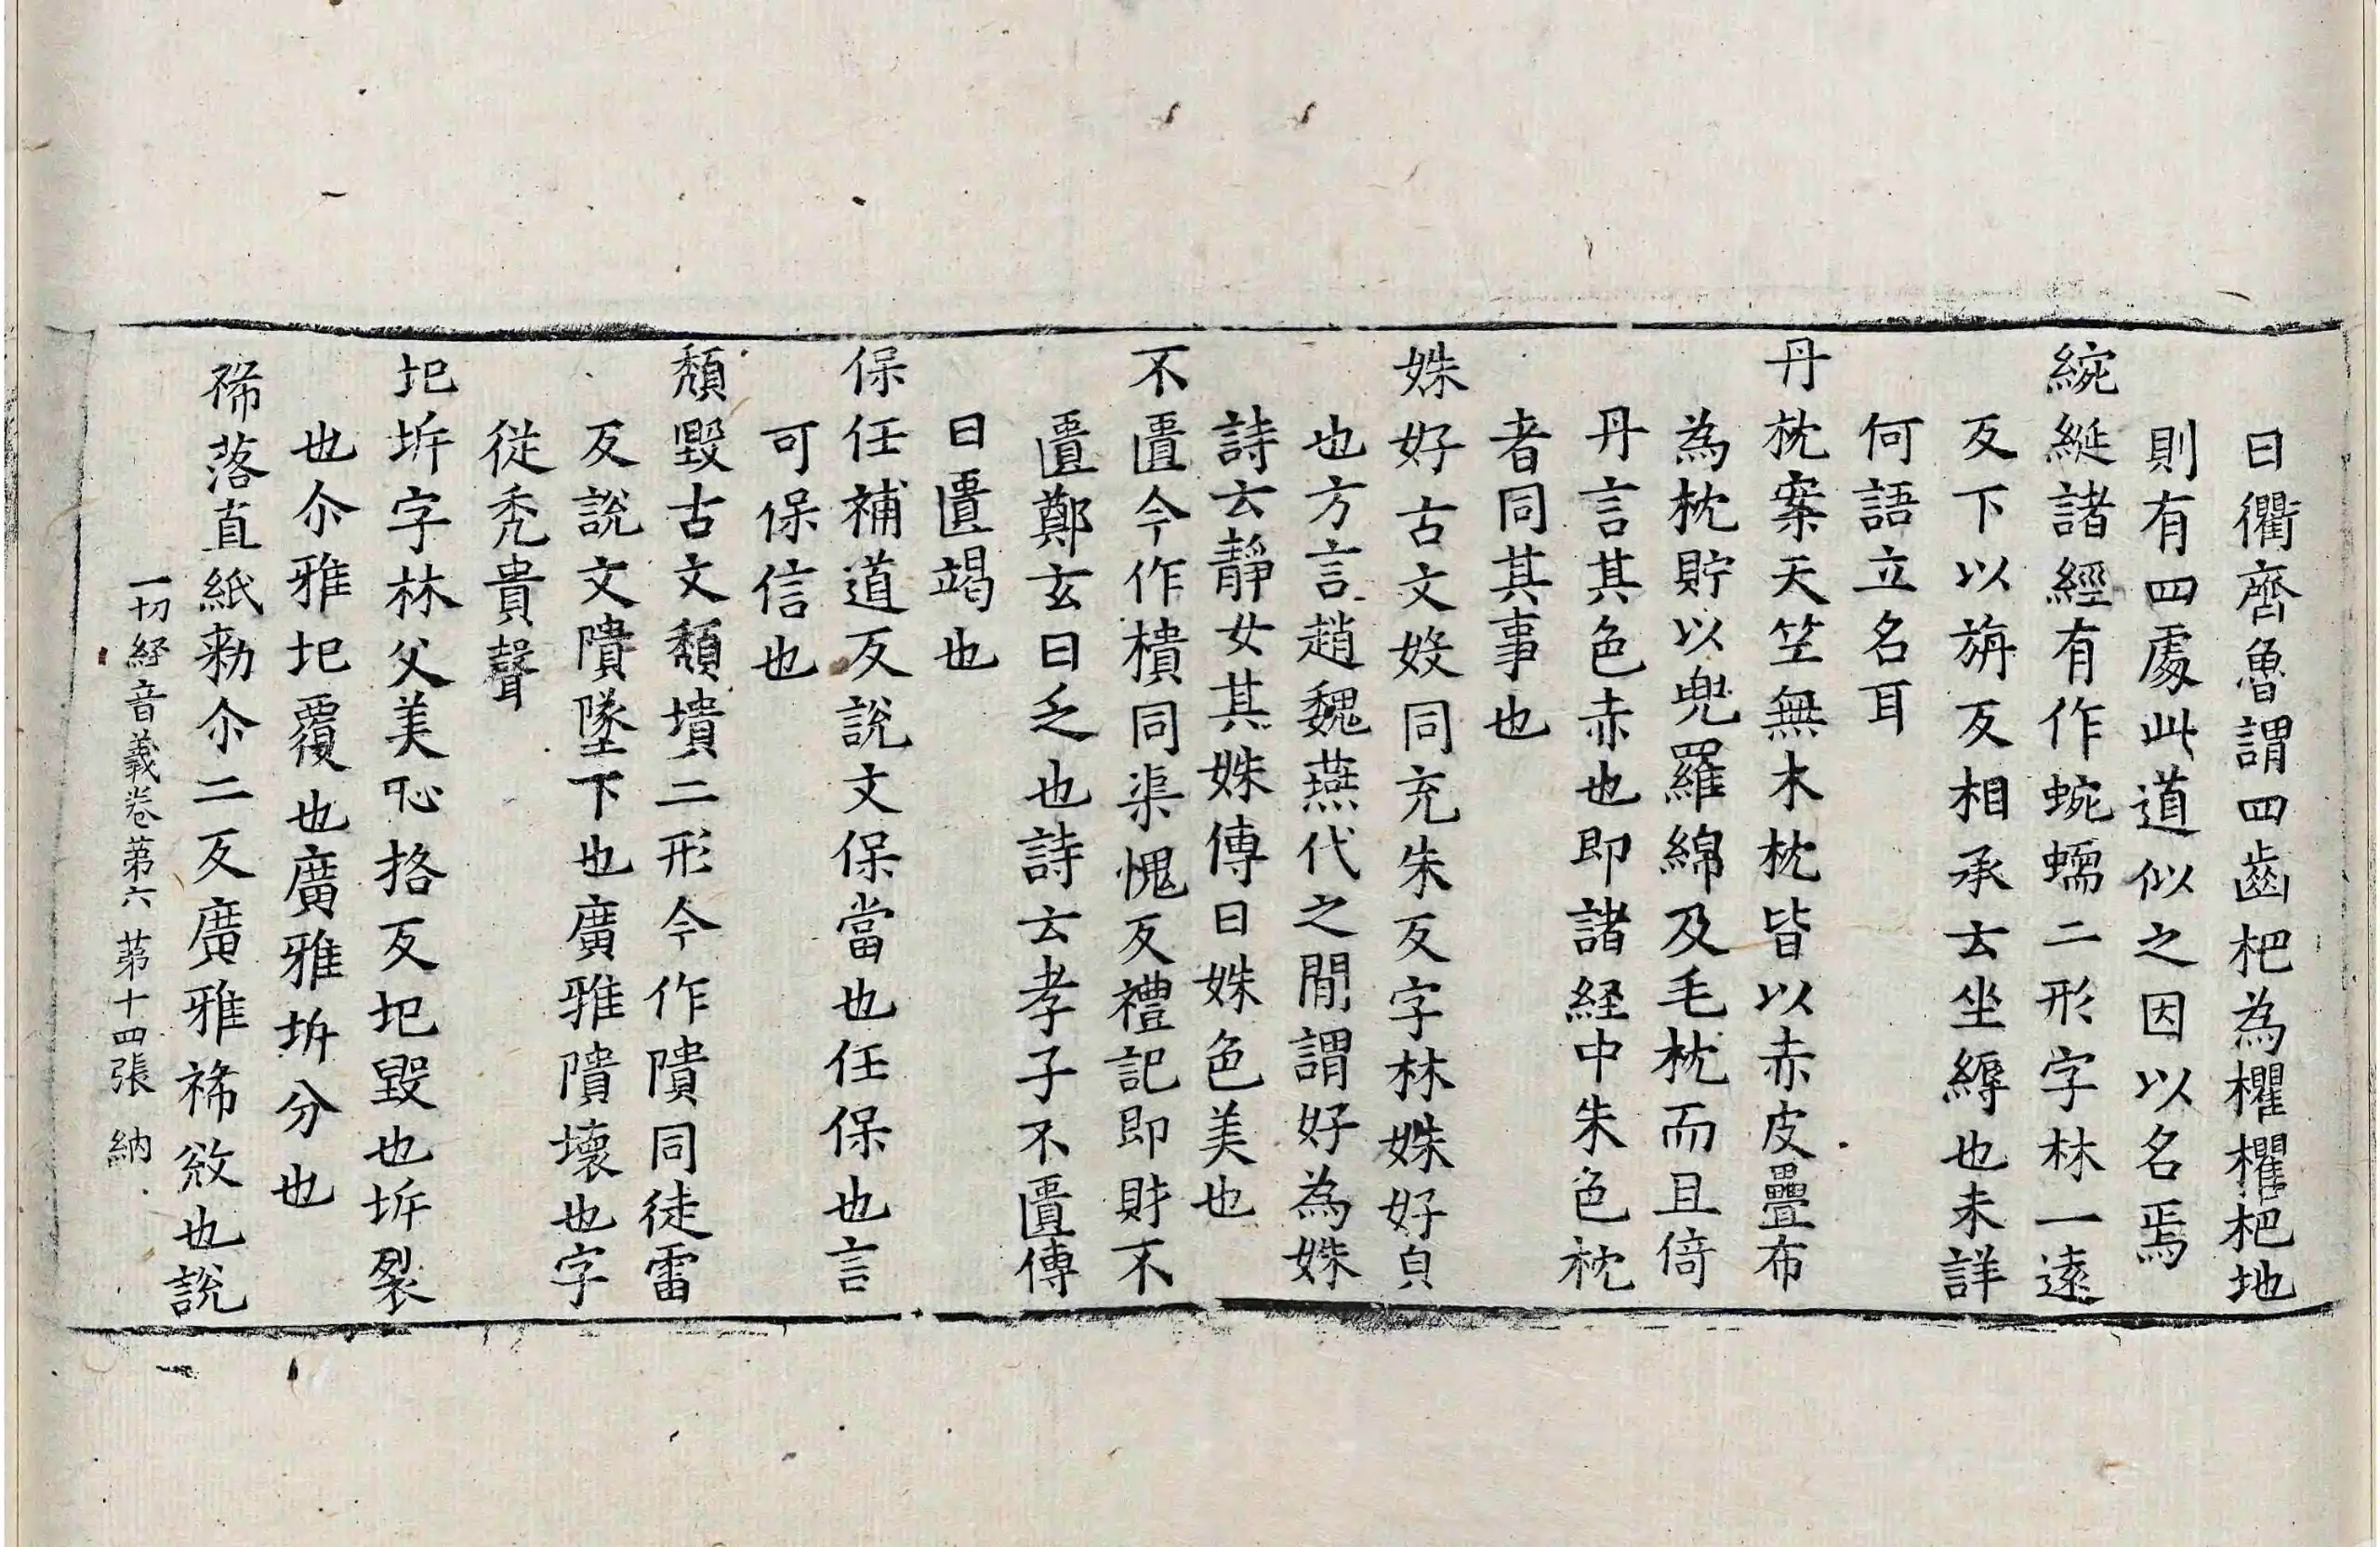 曰衢齊魯謂四齒杷為欋欋杷地
則有四處此道似之因以名焉
綩綖諸經有作蜿蠕二形字林一遠
反下以旃反相承云坐縟也未詳
何語立名耳
丹枕案天竺無木枕皆以赤皮疊布
為枕貯以兜羅綿及毛枕而且倚
丹言其色赤也即諸経中朱色枕
者同其事也
姝好古文㛂同充朱反字林姝好皃
也方言趙魏燕代之間謂好為姝
詩云靜女其姝傳曰姝色美也
不匱今作樻同渠愧反禮記即財不
匱鄭玄曰乏也詩云孝子不匱傳
曰匱竭也
保任補道反說文保當也任保也言
可保信也
頹毀古文穨墤二形今作隤同徒雷
反說文隤墜下也廣雅隤壞也字
從禿貴聲
圮坼字林父美恥挌反圮毀也坼裂
也尒雅圮覆也廣雅坼分也
褫落直紙勑尒二反廣雅褫敓也說
一切経音義卷第六 第十四張 納